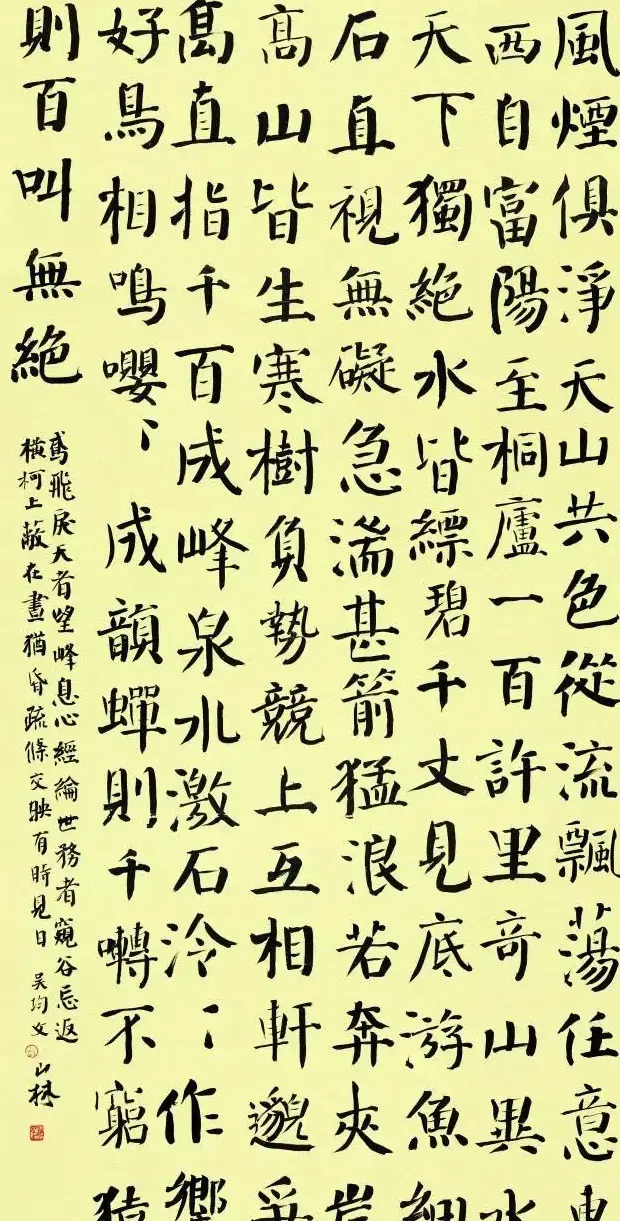 風煙俱淨天山共色從流飄蕩任意東
西自富陽至桐廬一百許里奇山異水
天下獨絕水皆縹碧千丈見底游魚細
石直視無礙急湍甚箭猛浪若奔夾岸
高山皆生寒樹負勢競上互相軒邈爭
高直指千百成峰泉水激石泠〻作響
好鳥相鳴嚶〻成韻蟬則千囀不窮猿
則百叫無絕
鳶飛戾天者望峰息心經綸世務者窺谷忘返
橫柯上蔽在晝猶昏疏條交映有時見日 吳均文 山